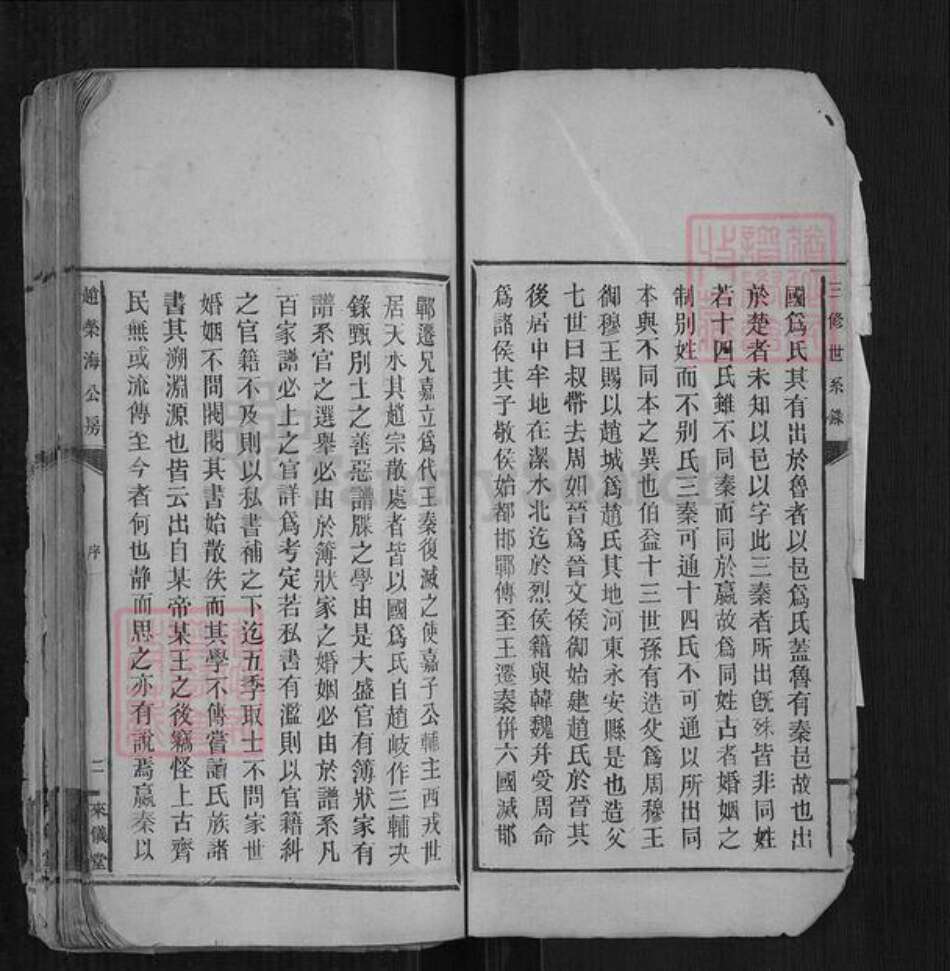 三修世系錄
國爲氏其有出於魯者以邑爲氏蓋魯有秦邑故也出
於楚者未知以邑以字此三秦者所出旣殊皆非同姓
若十四氏雖不同秦而同於嬴故爲同姓古者婚姻之
制别姓而不别氏三秦可通十四氏不可通以所出同
本與不同本之異也伯益十三世孫有造父爲周穆王
御穆王賜以趙城爲趙氏其地河東永安縣是也造父
七世曰叔帶去周如晉爲晉文侯御始建趙氏於晉其
後居中牟地在潔水北迄於烈侯籍與韓魏幷受周命
爲諸侯其子敬侯始都邯鄲傳至王遷秦併六國滅邯
鄲遷兄嘉立爲代王秦復滅之使嘉子公輔主西戎世
居天水其趙宗散處者皆以國爲氏自趙岐作三輔决
錄甄别士之善惡譜牒之學由是大盛官有簿狀家有
譜系官之選舉必由於簿狀家之婚姻必由於譜系凡
百家譜必上之官詳爲考定若私書有濫則以官籍糾
之官籍不及則以私書補之下迄五季取士不問家世
婚姻不問閥閱其書始散佚而其學不傳嘗讀氏族諸
書其溯淵源也皆云出自某帝某王之後竊怪上古齊
民無或流傳至今者何也静而思之亦有說焉嬴秦以
趙榮海公房
序
二
來儀堂